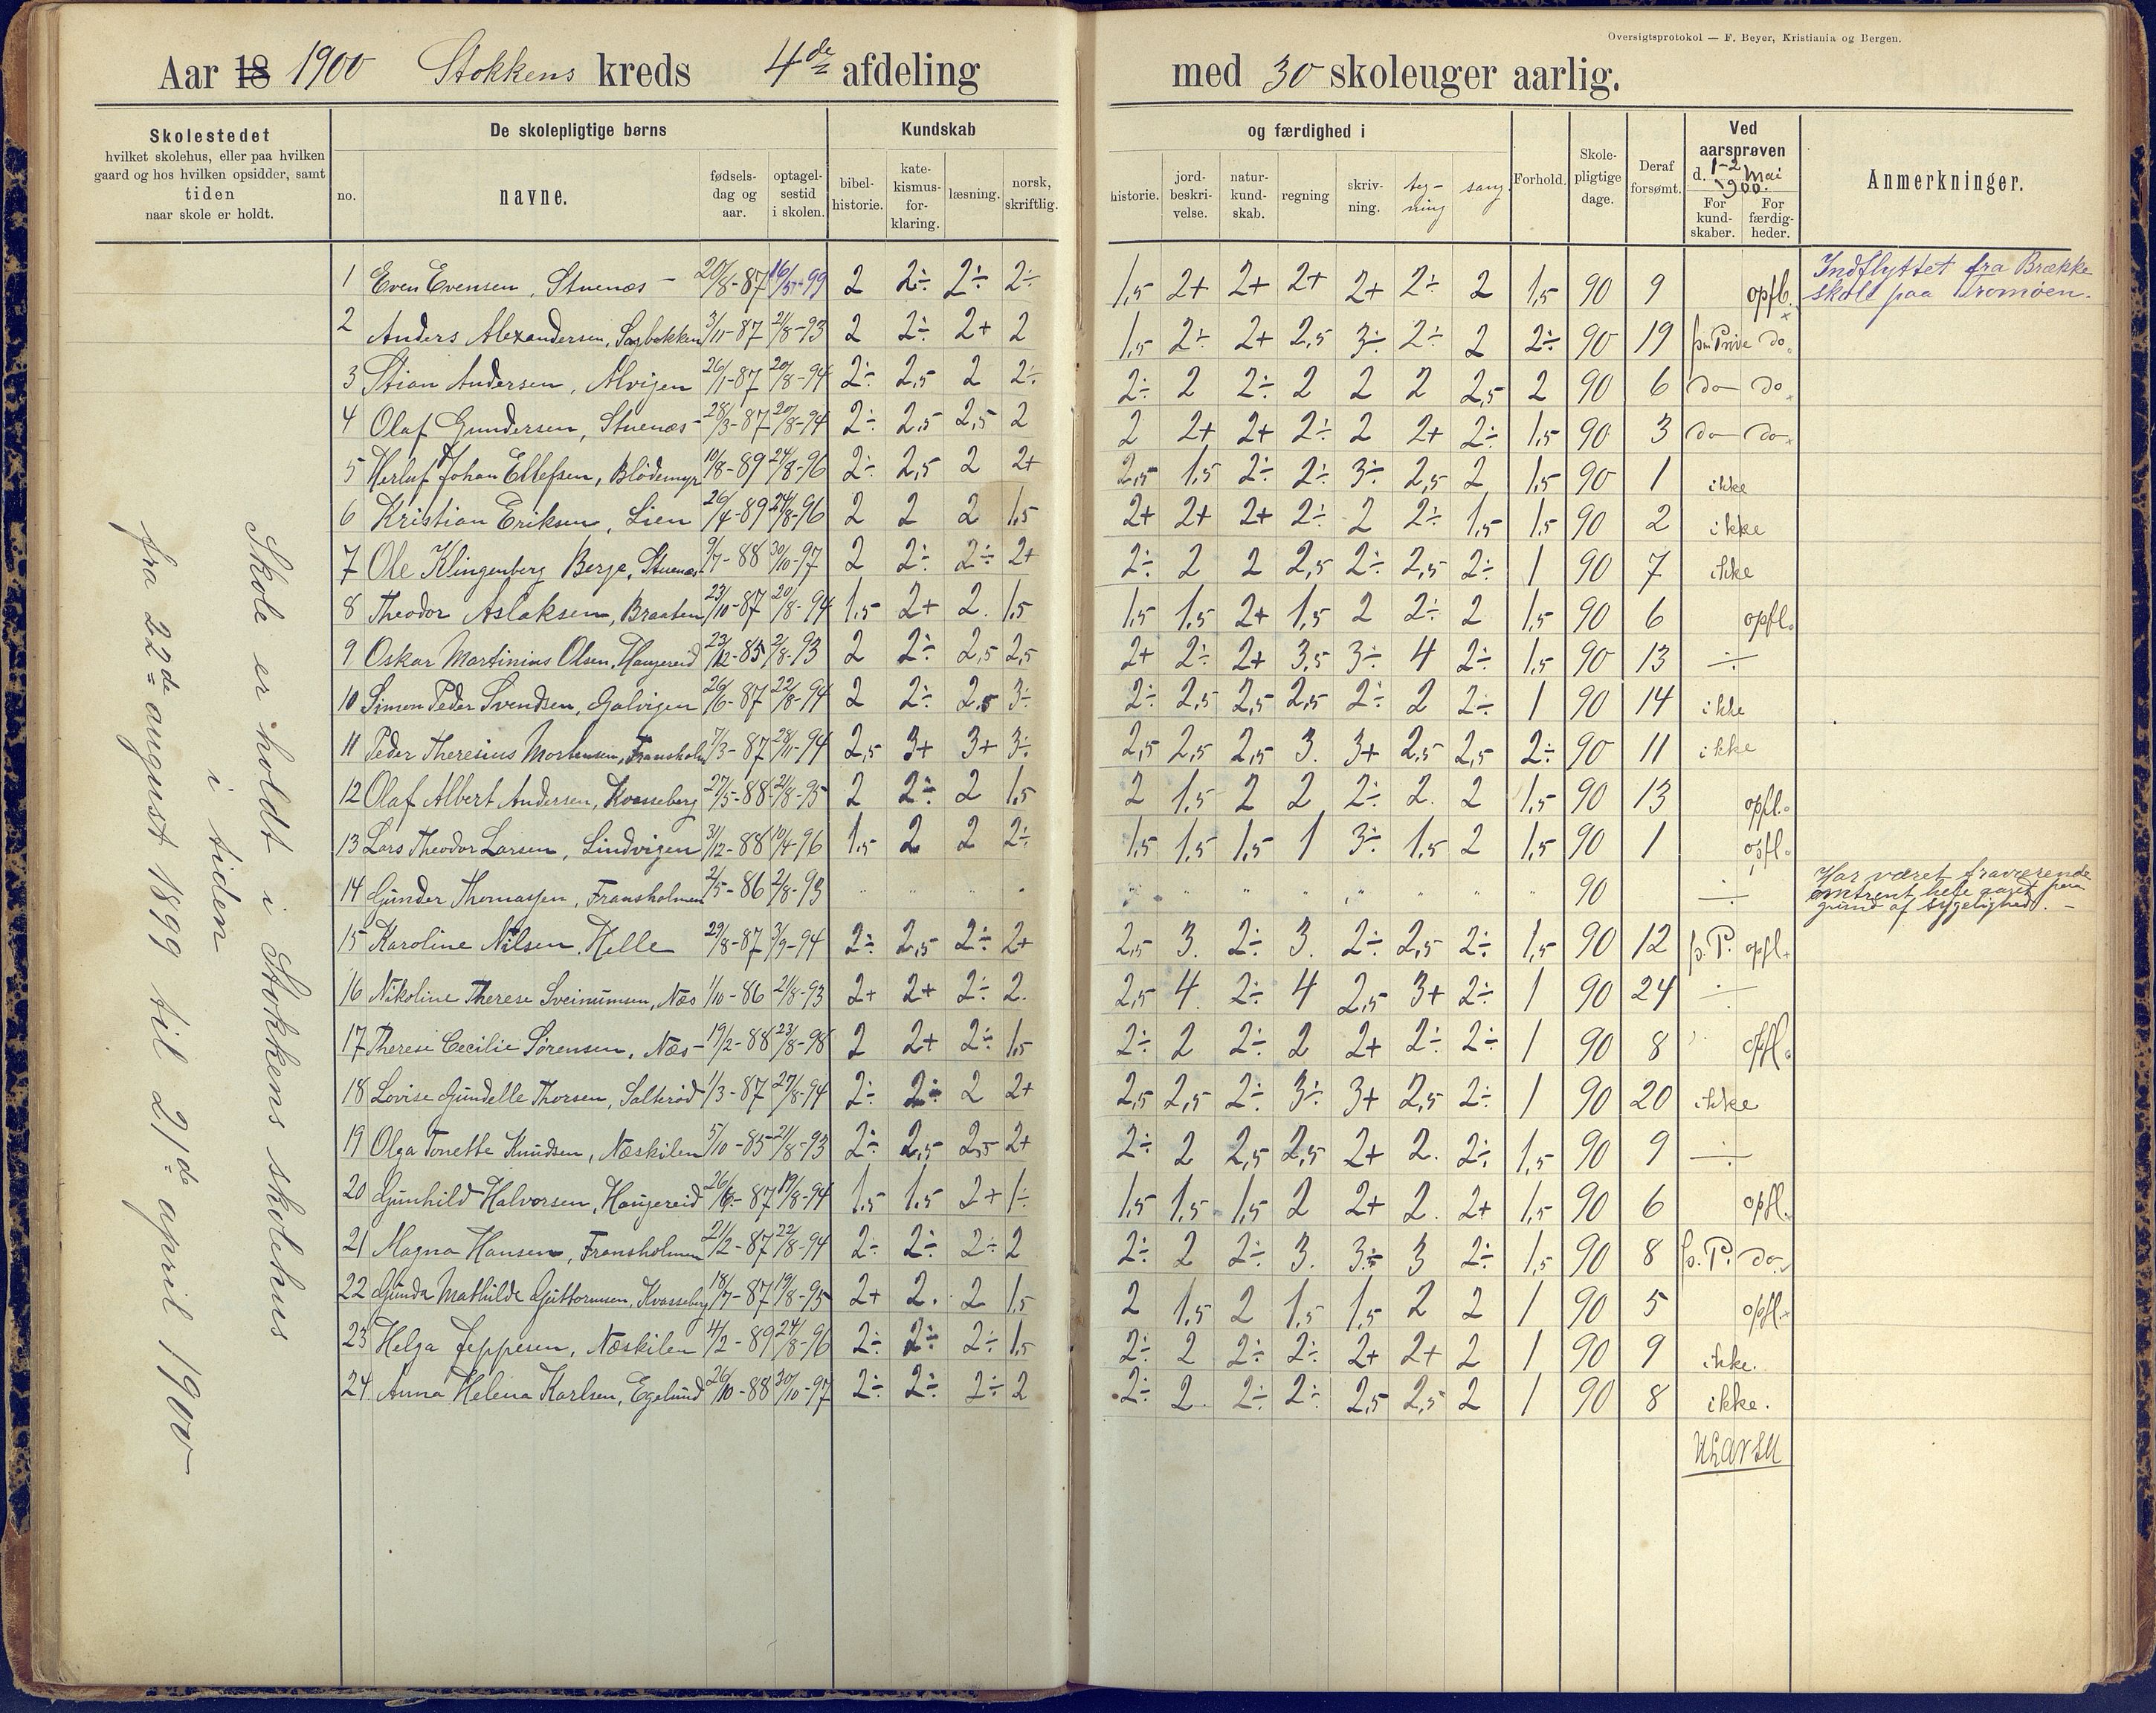 Oversigtsprotokol — F. Beyer, Kristiania og Bergen.
Aar 18 1900 Stokkens kreds 4de afdeling med 30 skoleuger aarlig.
Skolestedet
hvilket skolehus, eller paa hvilken
gaard og hos hvilken opsidder, samt
tiden
naar skole er holdt.
De skolepligtige børns
no.
navne.
fødsels-
dag og
aar.
optagel-
sestid
i skolen.
Kundskab
bibel-
historie.
kate-
kismus-
for-
klaring.
læsning.
norsk,
skriftlig.
og færdighed i
historie.
jord-
beskri-
velse.
natur-
kund-
skab.
regning
skriv-
ning.
teg-
ning
sang
Forhold.
Skole-
pligtige
dage.
Deraf
forsømt.
Ved
aarsprøven
d. 1-2 Mai
1900.
For
kund-
skaber.
For
færdig-
heder.
Anmerkninger.
Skole er holdt i Stokkens skolehus
i tiden
fra 22de august 1899 til 21de april 1900
1 Even Evensen, Stuenæs 20/8-87 16/5-99 2 2÷ 2÷ 2÷ 1,5 2+ 2+ 2+ 2+ 2÷ 2 1,5 90 9 opfl. Indflyttet fra Brække
skole paa Tromøen.
2 Anders Alexandersen, Sagbakken 3/11-87 21/8-93 2 2÷ 2+ 2 1,5 2÷ 2+ 2,5 3÷ 2÷ 2 2÷ 90 19 do.
3 Stian Andersen, Alvigen 26/1-87 20/8-94 2÷ 2,5 2 2÷ 2÷ 2 2÷ 2 2 2 2,5 2 90 6 do do.
4 Olaf Gundersen, Stuenæs 28/3-87 20/8-94 2÷ 2,5 2,5 2 2 2+ 2+ 2÷ 2 2+ 2÷ 1,5 90 3 do do.
5 Herluf Johan Ellefsen, Blödemyr 10/8-89 24/8-96 2÷ 2,5 2 2+ 2,5 1,5 2÷ 2÷ 3÷ 2,5 2 1,5 90 1 ikke
6 Kristian Eriksen, Lien 26/4-89 24/8-96 2 2 2 1,5 2+ 2+ 2+ 2÷ 2 2÷ 1,5 1,5 90 2 ikke
7 Ole Klingenberg Berge, Stuenæs 9/7-88 30/10-97 2 2÷ 2÷ 2+ 2÷ 2 2 2,5 2÷ 2,5 2÷ 1 90 7 ikke
8 Theodor Aslaksen, Braaten 23/10-87 20/8-94 1,5 2+ 2. 1,5 1,5 1,5 2+ 1,5 2 2÷ 2 1,5 90 6 opfl.
9 Oskar Martinius Olsen, Haugereid 23/12-85 2/8-93 2 2÷ 2,5 2,5 2+ 2÷ 2+ 3,5 3÷ 4 2÷ 1,5 90 13 ÷
10 Simon Peder Svendsen, Galvigen 26/6-87 22/8-94 2 2÷ 2,5 3÷ 2÷ 2,5 2,5 2,5 2÷ 2 2÷ 1 90 14 ikke
11 Peder Theresius Mortensen, Fransholm 7/3-87 28/11-94 2,5 3+ 3+ 3÷ 2,5 2,5 2,5 3. 3+ 2,5 2,5 2÷ 90 11 ikke
12 Olaf Albert Andersen, Kvasseberg 27/5-88 21/8-95 2 2÷ 2 1,5 2 1,5 2 2 2÷ 2. 2 1,5 90 13 opfl.
13 Lars Theodor Larsen, Lindvigen 31/12-88 10/4-96 1,5 2 2 2÷ 1,5 1,5 1,5 1 3÷ 1,5 2 1,5 90 1 opfl.
14 Gunder Thomassen, Fransholmen 2/5-86 2/8-93 " " " " " " " " " " " " 90 ÷ Har været fraværende
omtrent hele aaret paa
grund af sygelighed. –
15 Karoline Nilsen, Helle 29/8-87 3/9-94 2÷ 2,5 2÷ 2+ 2,5 3. 2÷ 3. 2÷ 2,5 2÷ 1,5 90 12 p. P. opfl.
16 Nikoline Therese Sveinumsen, Næs 1/10-86 21/8-93 2+ 2+ 2÷ 2. 2,5 4 2÷ 4 2,5 3+ 2÷ 1 90 24 ÷
17 Therese Cecilie Sørensen, Næs 19/2-88 23/8-98 2 2+ 2÷ 1,5 2÷ 2 2÷ 2 2+ 2÷ 2÷ 1 90 8 opfl.
18 Lovise Gundelle Thorsen, Salterød 1/3-87 27/8-94 2÷ 2÷ 2 2+ 2,5 2,5 2÷ 3÷ 3+ 2,5 2÷ 1 90 20 ikke
19 Olga Tonette Knudsen, Næskilen 5/10-85 21/8-93 2÷ 2,5 2,5 2+ 2÷ 2 2,5 2,5 2+ 2. 2÷ 1,5 90 9 ÷
20 Gunhild Halvorsen, Haugereid 26/6-87 19/8-94 1,5 1,5 2+ 1÷ 1,5 1,5 1,5 2 2+ 2. 2+ 1,5 90 6 opfl.
21 Magna Hansen, Fransholmen 21/2-87 22/8-94 2÷ 2÷ 2÷ 2 2÷ 2 2÷ 3. 3÷ 3 2÷ 1,5 90 8 p. P. do.
22 Gunda Mathilde Guttormsen, Kvasseberg 18/7-87 19/8-95 2+ 2. 2 1,5 2 1,5 2 1,5 1,5 2 2 1 90 5 opfl.
23 Helga Jeppesen, Næskilen 4/2-89 24/8-96 2÷ 2÷ 2÷ 1,5 2÷ 2 2÷ 2÷ 2+ 2+ 2 1 90 9 ikke.
24 Anna Helena Karlsen, Egelund 26/10-88 30/10-97 2÷ 2÷ 2÷ 2 2÷ 2 2÷ 2÷ 2,5 2,5 2 1 90 8 ikke.